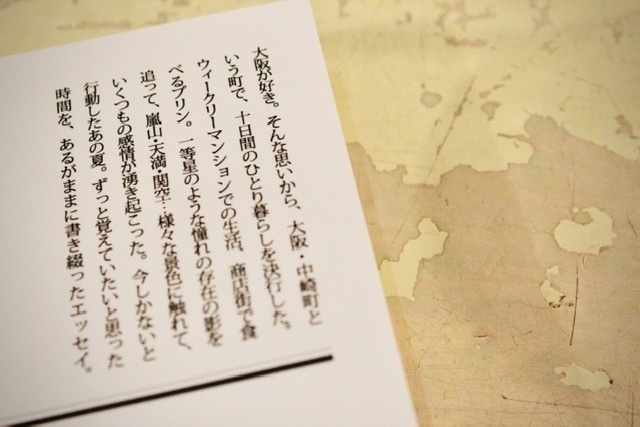 大阪が好き。そんな思いから、大阪・中崎町と
いう町で、十日間のひとり暮らしを決行した。
ウィークリーマンションでの生活、商店街で食
べるプリン。一等星のような憧れの存在の影を
追って、嵐山・天満・関空…様々な景色に触れて、
いくつもの感情が湧き起こった。今しかないと
行動したあの夏。ずっと覚えていたいと思った
時間を、あるがままに書き綴ったエッセイ。